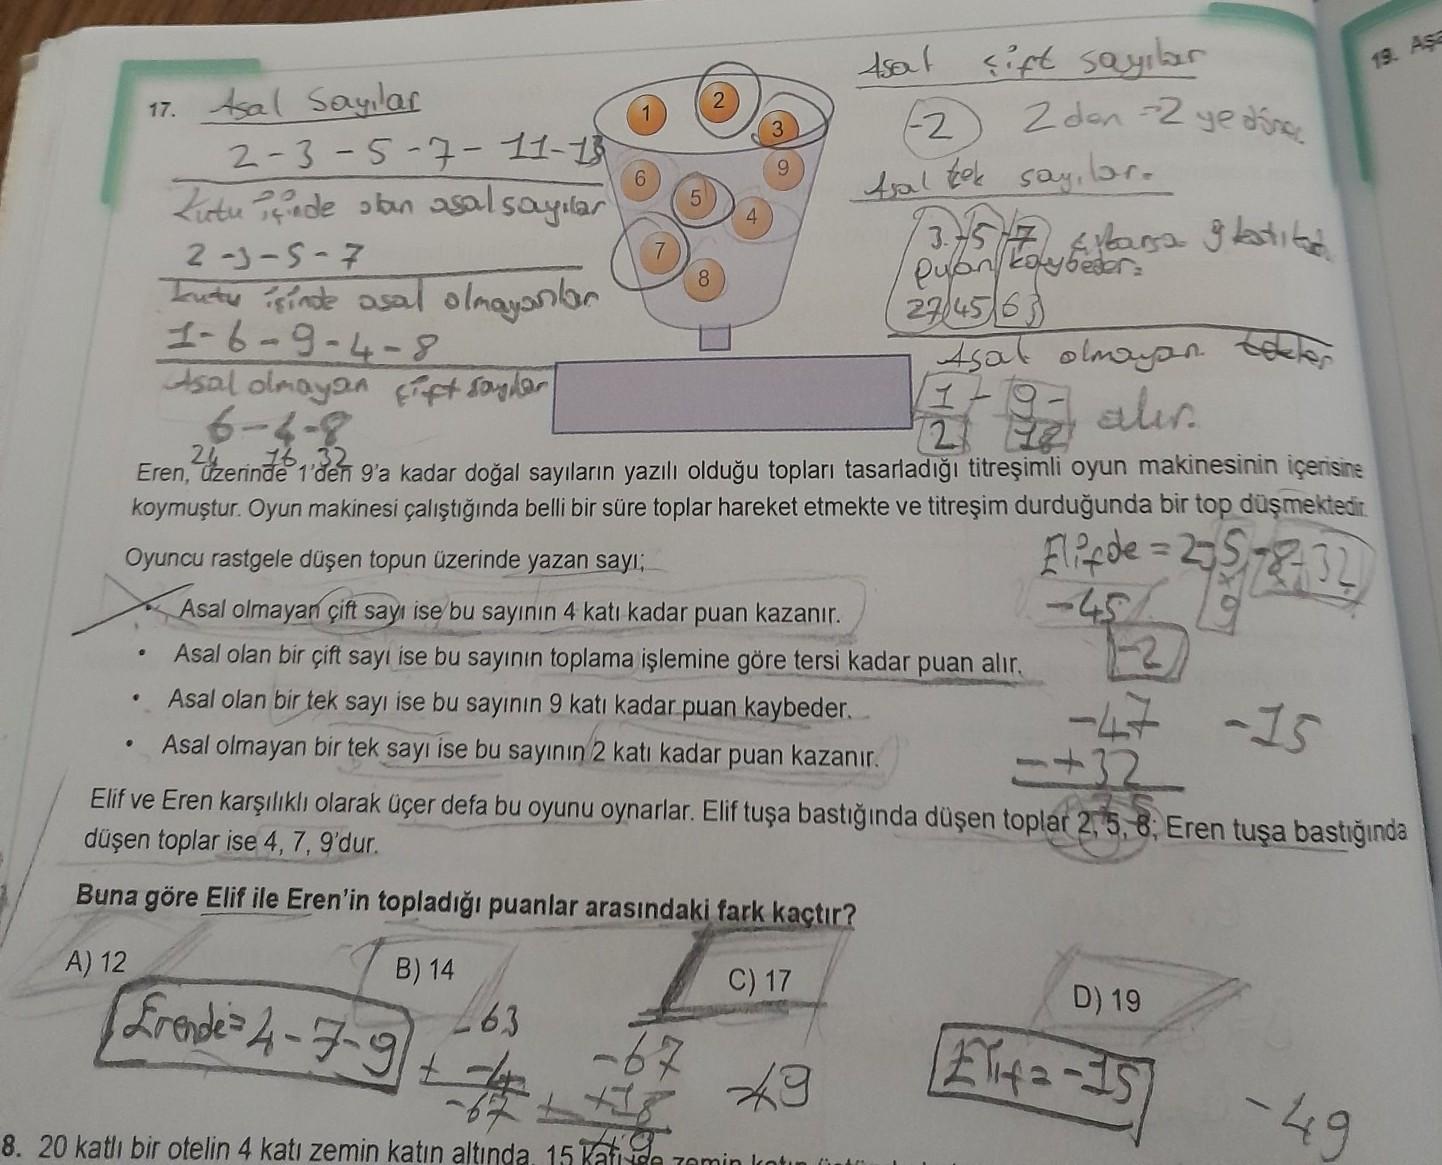 17. Asal Sayılar
2-3-5-7-11-13
Kutu içinde olan asal sayılar
2-3-5-7
kutu içinde asal olmayanlar
1-6-9-4-8
Asal olmayan çift sayılar
6-4-8
24 16 32
1
2
3
6
5
9
4
7
8
Asal çift sayılar
-2 2 den -2 ye
Asal tek sayılar.
3-5-7 9 katı
puan kaybeder.
27 45 63
Asal olmayan tekler
1-9-
2 18 alır.
19.
Eren, üzerinde 1'den 9'a kadar doğal sayıların yazılı olduğu topları tasarladığı titreşimli oyun makinesinin içerisine
koymuştur. Oyun makinesi çalıştığında belli bir süre toplar hareket etmekte ve titreşim durduğunda bir top düşmektedir.
Oyuncu rastgele düşen topun üzerinde yazan sayı;
• Asal olmayan çift sayı ise bu sayının 4 katı kadar puan kazanır.
• Asal olan bir çift sayı ise bu sayının toplama işlemine göre tersi kadar puan alır.
• Asal olan bir tek sayı ise bu sayının 9 katı kadar puan kaybeder.
• Asal olmayan bir tek sayı ise bu sayının 2 katı kadar puan kazanır.
Elifde = 2-5-8-32
-45 9
-2
-47 -15
+32
Elif ve Eren karşılıklı olarak üçer defa bu oyunu oynarlar. Elif tuşa bastığında düşen toplar 2, 5, 8; Eren tuşa bastığında
düşen toplar ise 4, 7, 9'dur.
Buna göre Elif ile Eren'in topladığı puanlar arasındaki fark kaçtır?
A) 12
B) 14
C) 17
D) 19
Erende = 4-7-9
-63
+ -4
-67
-67
+ +18
-49
Elif = -15
-49
8. 20 katlı bir otelin 4 katı zemin katın altında, 15 katı ise zemin katın